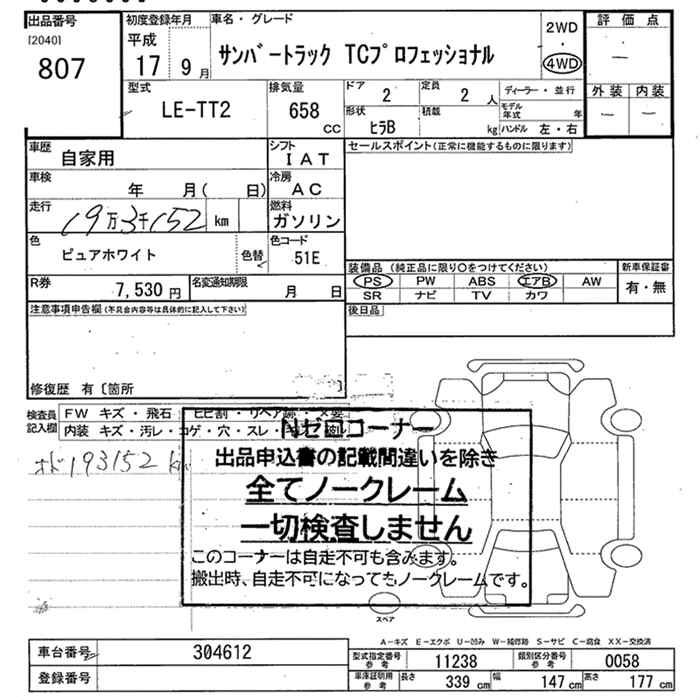 出品番号 初度登録年月 車名・グレード 2WD 評価点
[2040] 平成 ・
807 17年 9月 サンバートラック TCプロフェッショナル 4WD ー
型式 排気量 ドア 定員 ディーラー・並行 外装 内装
LE-TT2 658 CC 2 2人 モデル年式 年 ー ー
形状 積載
ヒラB kg ハンドル 左・右
車歴 自家用 シフト IAT セールスポイント(正常に機能するものに限ります)
車検 年 月( 日) 冷房 AC
走行 19万3千152 km 燃料 ガソリン
色 ピュアホワイト 色替 色コード 51E
装備品 (純正品に限り○をつけてください) 新車保証書
R券 7,530円 名変通知期限 月 日 PS PW ABS エアB AW 有・無
SR ナビ TV カワ
注意事項申告欄(不具合内容等は具体的に記入して下さい) 後日品
修復歴 有〔箇所
検査員記入欄 FW キズ・飛石 ヒビ割・リペア跡・×要
内装 キズ・汚レ・コゲ・穴・スレ
オド193152 km
Nゼロコーナー
出品申込書の記載間違いを除き
全てノークレーム
一切検査しません
このコーナーは自走不可も含みます。
搬出時、自走不可になってもノークレームです。
スペア
A-キズ E-エクボ U-凹み W-補修跡 S-サビ C-腐食 XX-交換済
車台番号 304612 型式指定番号参考 11238 類別区分番号参考 0058
登録番号 車庫証明用参考 長さ 339cm 幅 147cm 高さ 177cm